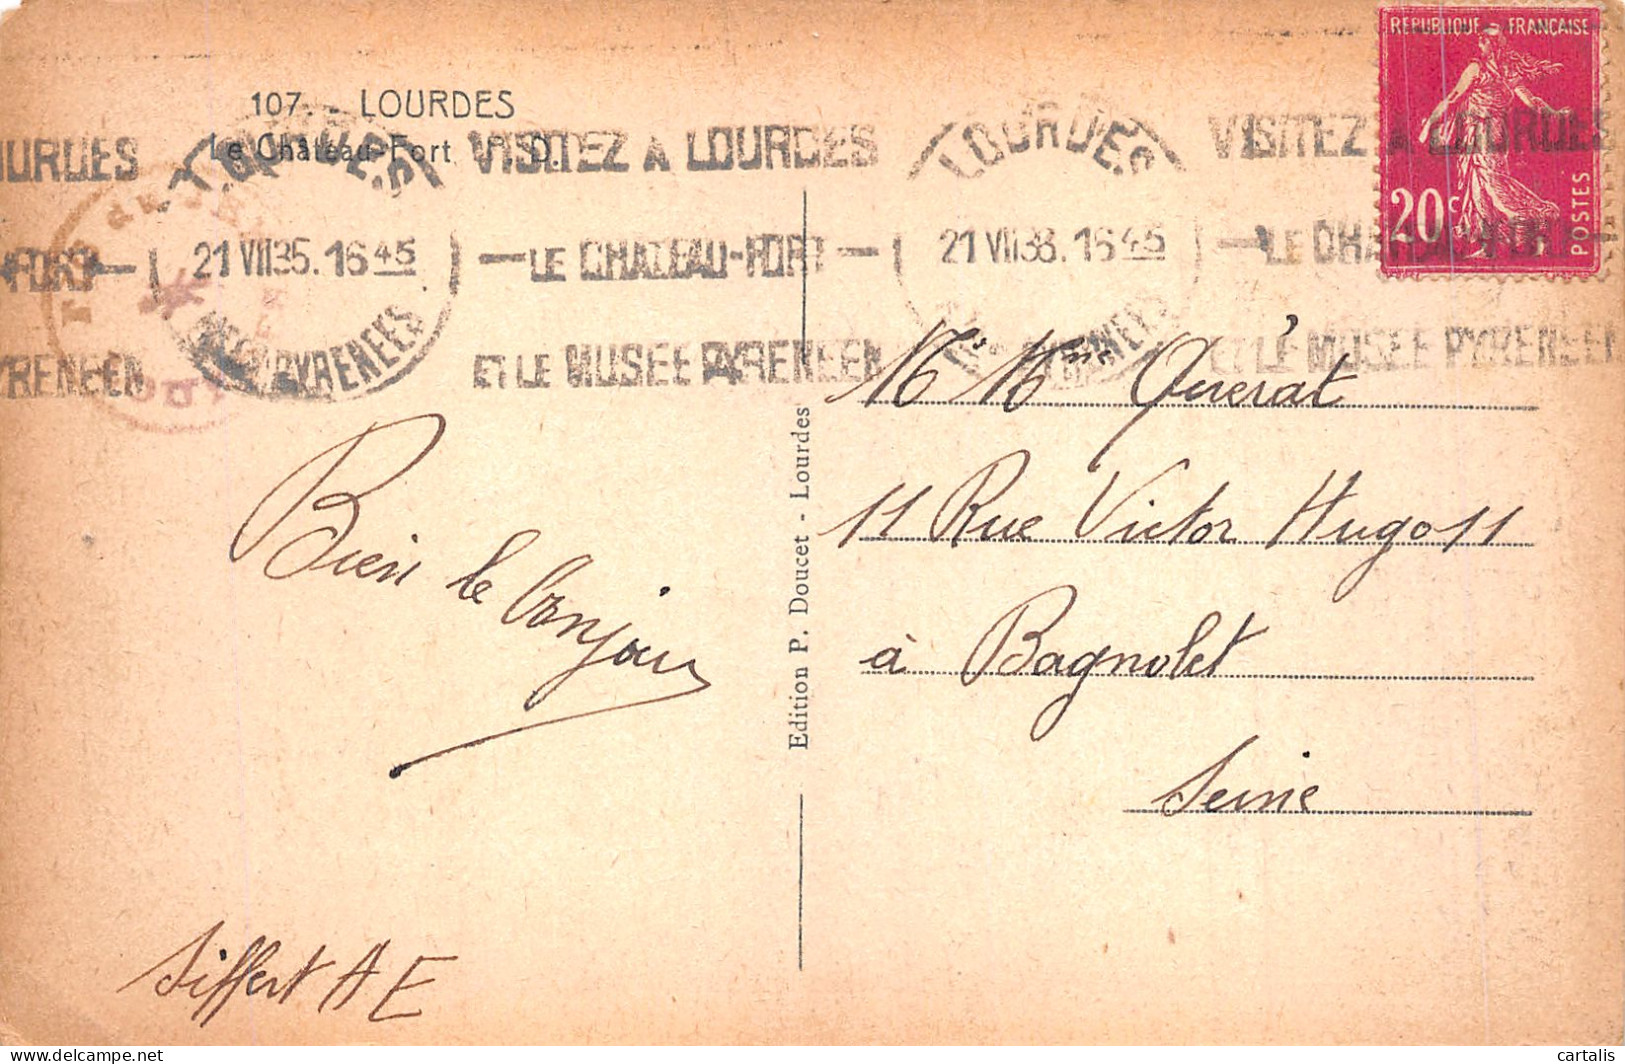 107. - LOURDES
Le Château-Fort P. D.
VISITEZ A LOURDES
LE CHATEAU-FORT
ET LE MUSEE PYRENEEN
LOURDES
21 VII 35. 16 45
PYRENEES
LOURDES
21 VII 38. 16 45
PYRENEES
VISITEZ A LOURDES
LE CHATEAU-FORT
ET LE MUSEE PYRENEEN
OURDES
FORT
YRENEEN
REPUBLIQUE FRANÇAISE
20c
POSTES
Mr Mme Querat
11 Rue Victor Hugo 11
à Bagnolet
Seine
Bien le bonjour
Siffert A E
Edition P. Doucet - Lourdes
cartalis
delcampe.net